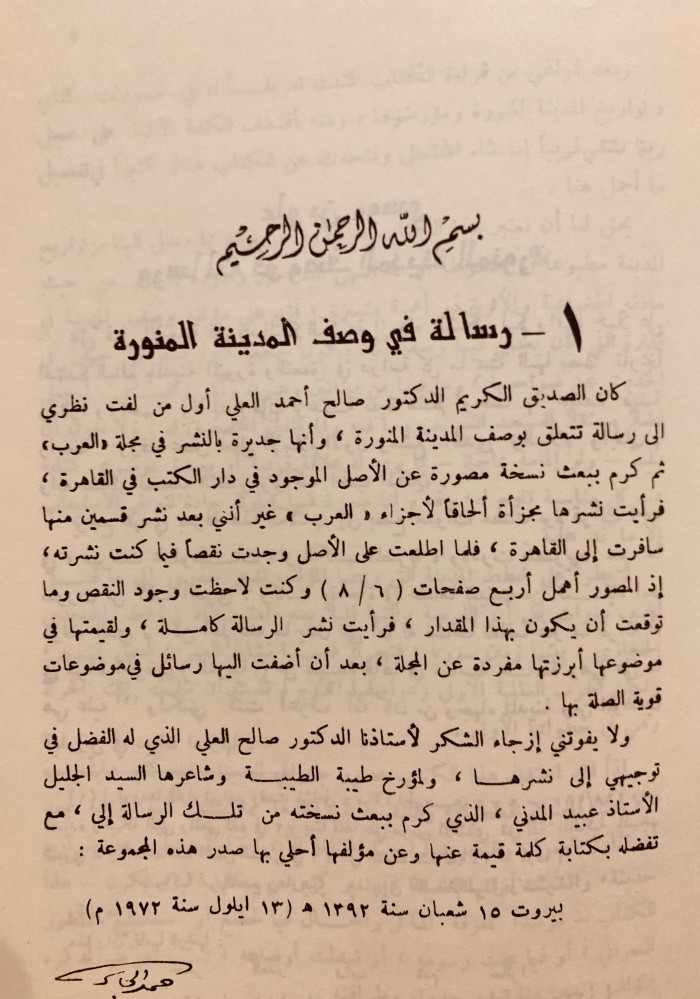 بسم الله الرحمن الرحيم
١ - رسالة في وصف المدينة المنورة
كان الصديق الكريم الدكتور صالح أحمد العلي أول من لفت نظري
الى رسالة تتعلق بوصف المدينة المنورة ، وأنها جديرة بالنشر في مجلة «العرب»
ثم كرم ببعث نسخة مصورة عن الأصل الموجود في دار الكتب في القاهرة ،
فرأيت نشرها مجزأة ألحاقاً لأجزاء « العرب » غير أنني بعد نشر قسمين منها
سافرت إلى القاهرة ، فلما اطلعت على الأصل وجدت نقصاً فيما كنت نشرته،
إذ المصور أهمل أربع صفحات ( ٦ / ٨ ) وكنت لاحظت وجود النقص وما
توقعت أن يكون بهذا المقدار ، فرأيت نشر الرسالة كاملة ، ولقيمتها في
موضوعها أبرزتها مفردة عن المجلة ، بعد أن أضفت اليها رسائل في موضوعات
قوية الصلة بها .
ولا يفوتني إزجاء الشكر لأستاذنا الدكتور صالح العلي الذي له الفضل في
توجيهي إلى نشرها ، ولمؤرخ طيبة الطيبة وشاعرها السيد الجليل
الأستاذ عبيد المدني ، الذي كرم ببعث نسخته من تلك الرسالة إلي ، مع
تفضله بكتابة كلمة قيمة عنها وعن مؤلفها أحلي بها صدر هذه المجموعة :
بيروت ١٥ شعبان سنة ١٣٩٢ ه (١٣ ايلول سنة ١٩٧٢ م)
حمد الجاسر